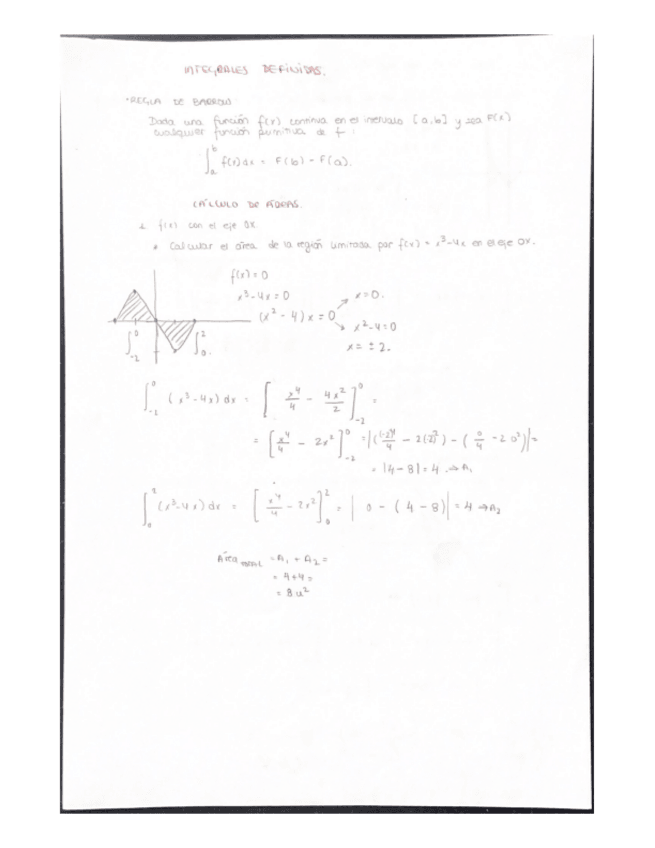 INTEGRALES DEFINIDAS.
·REGLA DE BARROW
Dada una función f(x) continua en el intervalo [a,b] y sea F(x)
cualquier función primitiva de f :
∫_a^b f(x)dx = F(b) - F(a).
CÁLCULO DE ÁREAS.
f(x) con el eje OX.
Calcular el área de la región limitada por f(x) = x³-4x en el eje OX.
f(x)=0
x³-4x=0
(x²-4)x=0 ↗ x=0.
↘ x²-4=0
x= ±2.
∫_-2^0 ∫_0^2
∫_-2^0 (x³-4x)dx = [x⁴/4 - 4x²/2]_-2^0 =
= [x⁴/4 - 2x²]_-2^0 = |((-2)⁴/4 - 2(-2)²) - (0/4 - 2·0²)| =
= |4-8| = 4 ⇒ A₁
∫_0^2 (x³-4x)dx = [x⁴/4 - 2x²]_0^2 = | 0 - (4-8)| = 4 ⇒ A₂
Área TOTAL = A₁ + A₂ =
= 4+4 =
= 8u²